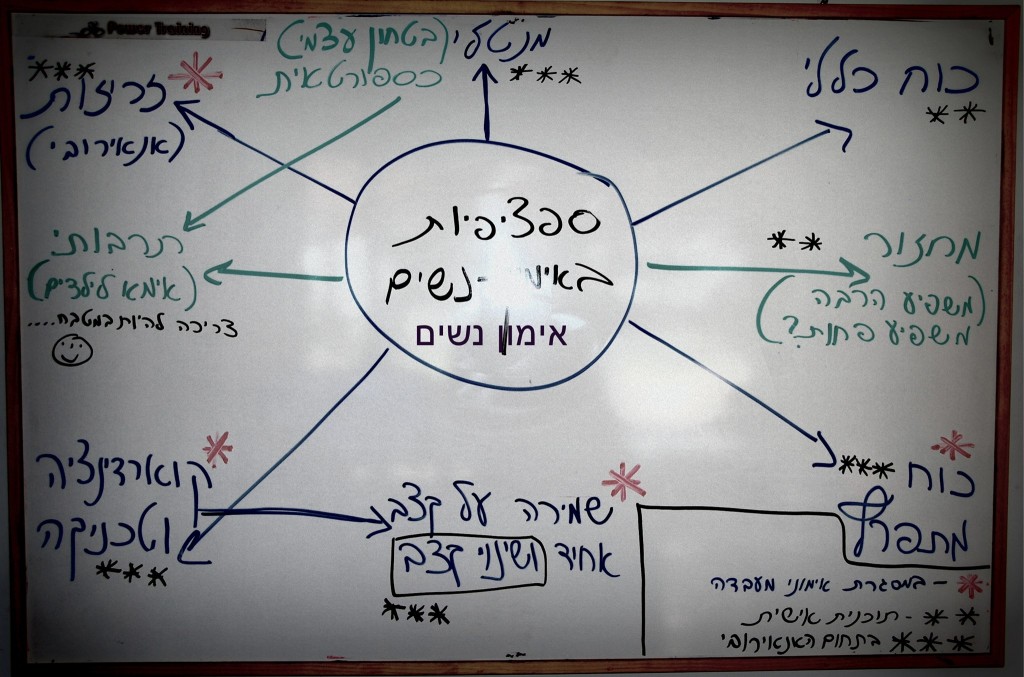 Power Training
מנטלי (בטחון עצמי)
***
כספורטאית
כוח כללי
**
***
זריזות *
(אנאירובי)
ספציפיות
נשים-
אימון נשים
מחזור **
(משפיע הרבה
משפיע פחות?)
תרבותי
(אימא לילדים)
צריכה להיות במטבח....
קוארדינציה *
וטכניקה
***
שמירה על קצב *
אחיד ושינוי קצב
***
*
כוח ***
מתפרץ
* - במסגרת אימוני מעבדה
** - תוכנית אישית
*** בתחום האנאוירובי